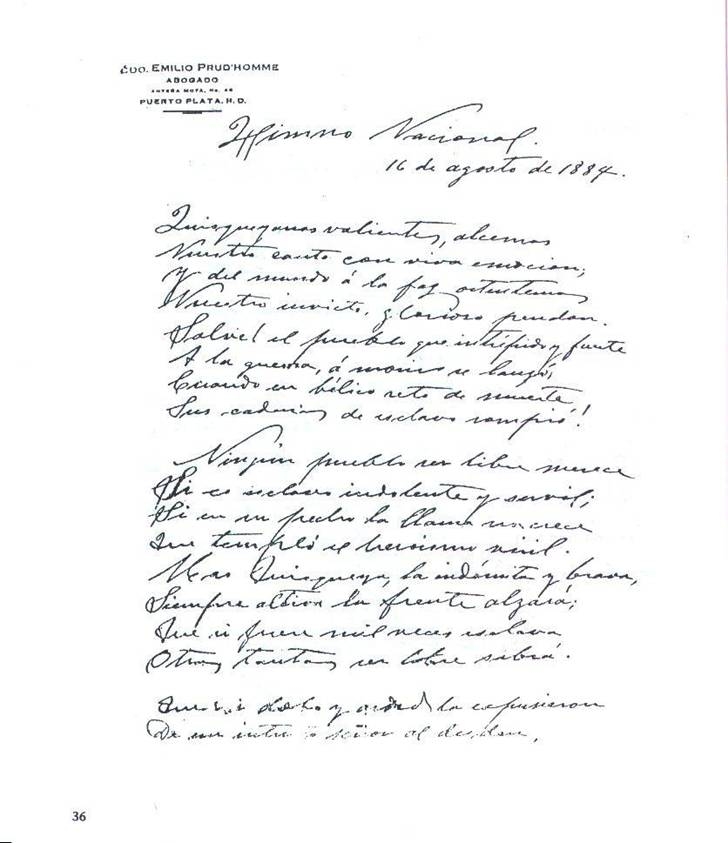 LCDO. EMILIO PRUD'HOMME
ABOGADO
PUERTO PLATA, R. D.
Himno Nacional.
16 de agosto de 1884.
Quisqueyanos valientes, alcemos
Nuestro canto con viva emocion;
Y del mundo á la faz ostentemos
Nuestro invicto, glorioso pendon.
Salve! el pueblo que intrépido y fuerte
A la guerra, á morir se lanzó,
Cuando en bélico reto de muerte
Sus cadenas de esclavo rompió!
Ningún pueblo ser libre merece
Si es esclavo indolente y servil;
Si en su pecho la llama no crece
Que templó el heroismo viril.
Mas Quisqueya, la indómita y brava,
Siempre altiva la frente alzará;
Que si fuere mil veces esclava
Otras tantas ser libre sabrá.
Que si dolo y ardid la expusieron
De un intruso señor al desden,
36